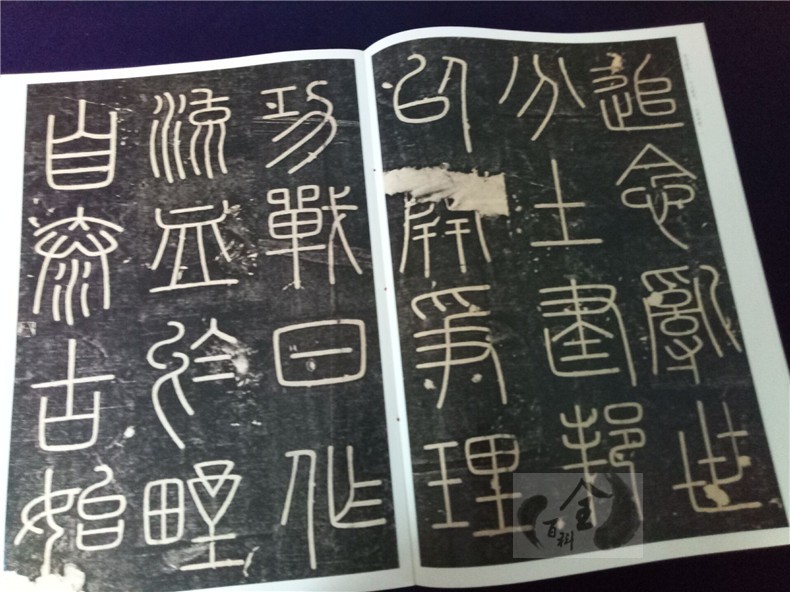 追念亂世
分土建邦
以開爭理
功戰日作
流血於野
自泰古始
全
百科